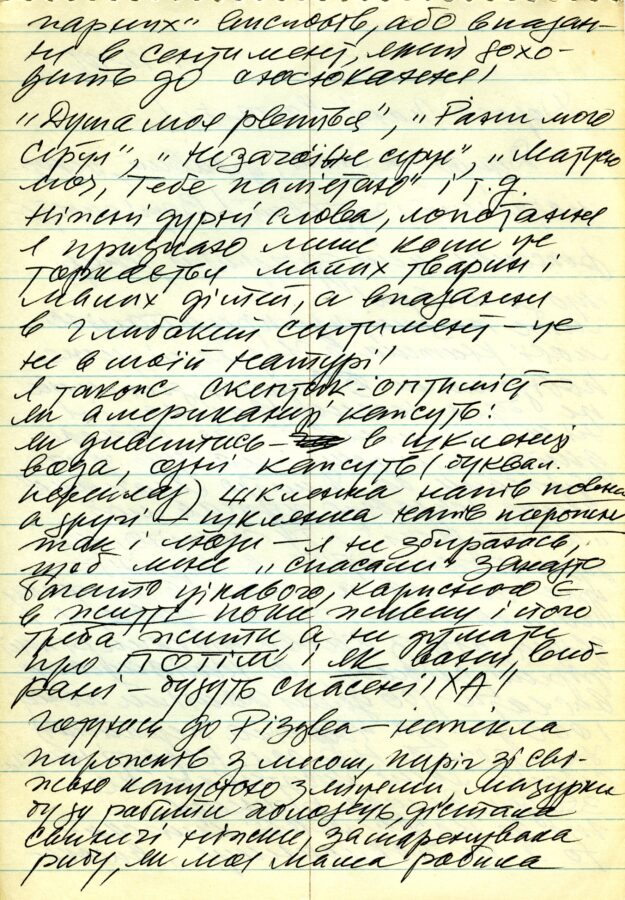 гарних" висловів, або вказан-
ня в сентимент, який дохо-
дить до сюсюкання!
"Душа моя рветься", "Рани мого
серця", " серце", "Матусю
моя, Тебе памʼятаю" і т.д.
Ніжні дурні слова, лопотання
я признаю лише коли це
торкається малих тварин і
малих дітей, а вказання
в глибокий сентимент – це
не в моїй натурі!
Я також скептик-оптиміст –
як американці кажуть:
як дивитись – в шклянці
вода, одні кажуть (буквал.
) шклянка напів повна
а другі – шклянка напів порожня
так і люди – я не збираюсь,
щоб мене "спасали" занадто
багато цікавого, корисного є
в житті поки живеш і його
треба жити, а не думати
про ПОТІМ і як вони, виб-
рані – будуть спасені! ХА!
Готуюсь до Різдва – напекла
пирожків з мясом, пиріг зі сві-
жою капустою з яйцями, мазурки
буду робити холодець, дістала
свинячі ніжки, замаринувала
рибу, як моя мама робила